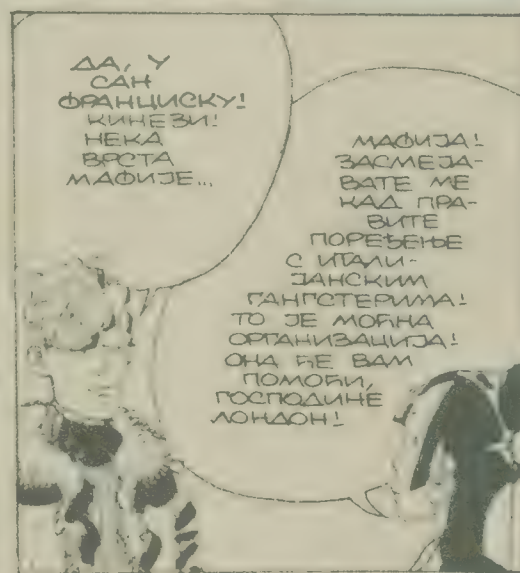 ДА, У
САН
ФРАНЦИСКУ!
КИНЕЗИ!
НЕКА
ВРСТА
МАФИЈЕ...
МАФИЈА!
ЗАСМЕЈА-
ВАТЕ МЕ
КАД ПРА-
ВИТЕ
ПОРЕЂЕЊЕ
С ИТАЛИ-
ЈАНСКИМ
ГАНГСТЕРИМА!
ТО ЈЕ МОЋНА
ОРГАНИЗАЦИЈА!
ОНА ЋЕ ВАМ
ПОМОЋИ,
ГОСПОДИНЕ
ЛОНДОН!